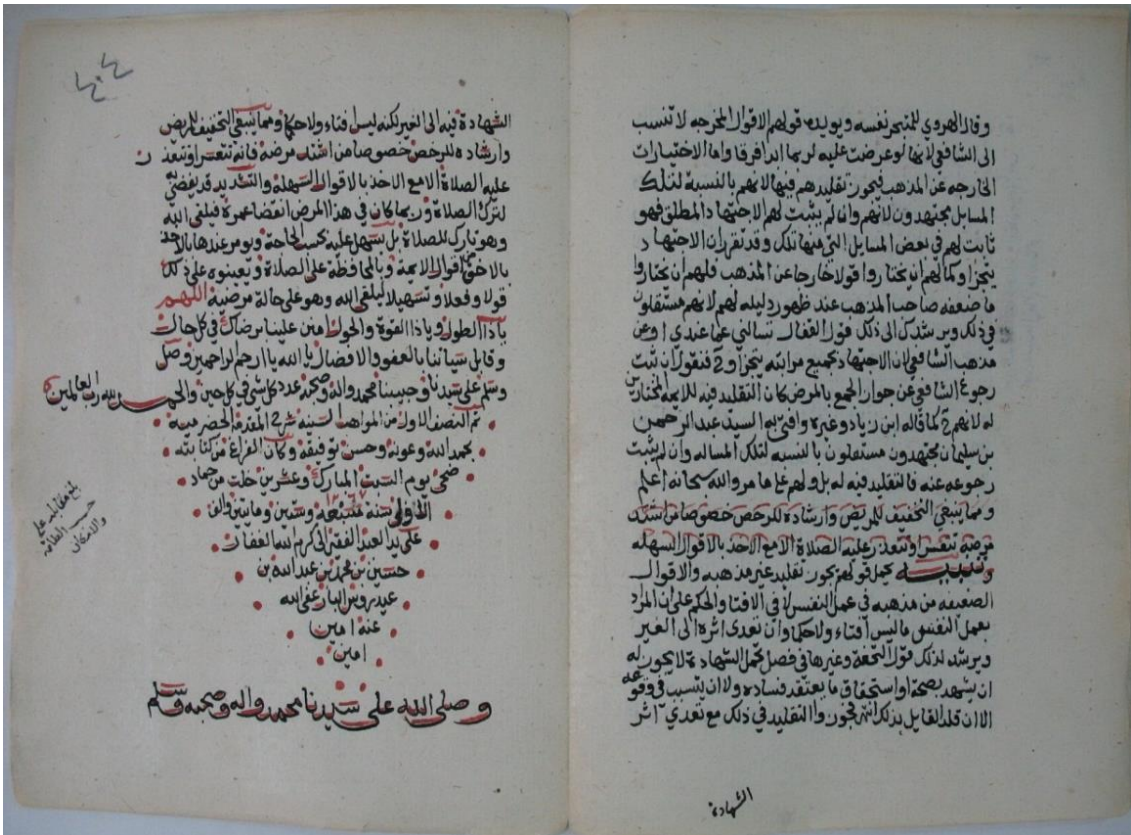 وقال الهروي للمتبحر نفسه ويويده قولهم الاقوال المخرجه لا تنسب
الى الشافعي لانها لو عرضت عليه لربما ابدا فرقا واما الاختيارات
الخارجه عن المذهب فيجوز تقليدهم فيها لانهم بالنسبة لتلك
المسايل مجتهدون لانهم وان لم يثبت لهم الاجتهاد المطلق فهو
ثابت لهم في بعض المسايل التي منها تلك وقد تقرر ان الاجتهاد
يتجزا وكما لهم ان يختاروا قولا خارجا عن المذهب فلهم ان يختاروا
ما ضعفه صاحب المذهب عند ظهور دليله لهم لانهم مستقلون
في ذلك ويرشدك الى ذلك قول القفال تسالني عما عندي او عن
مذهب الشافعي لان الاجتهاد بجميع مراتبه يتجزا وح فنقول ان ثبت
رجوع الشافعي عن جواز الجمع بالمرض كان التقليد فيه للايمه المختارين
له لانهم ح كما قاله ابن زياد وغيره وافتى به السيد عبد الرحمن
بن سليمان مجتهدون مستقلون بالنسبه لتلك المساله وان لم يثبت
رجوعه عنه فالتقليد فيه له بل ولهم على ما مر والله سبحانه اعلم
ومما ينبغي التخفيف للمريض وارشاده للرخص خصوصا من اشتد
مرضه تتعسر او تتعذر عليه الصلاة الا مع الاخذ بالاقوال السهله
وتنبيه يحمل قولهم يجوز تقليد غير مذهبه والاقوال
الضعيفه من مذهبه في عمل النفس لا في الافتا والحكم على ان المراد
بعمل النفس ما ليس افتاء ولا حكما وان تعدى اثره الى الغير
ويرشد لذلك قول التحفة وغيرها في فصل تحمل الشهادة لا يجوز له
ان يشهد بصحة او استحقاق ما يعتقد فساده ولا ان يتسبب في وقوعه
الا ان قلد القايل بذلك انتهى فجوزوا التقليد في ذلك مع تعدي اثر
الشهادة
الشهادة فيه الى الغير لكنه ليس افتاء ولا حكما ومما ينبغي التخفيف للمريض
وارشاده للرخص خصوصا من اشتد مرضه فانه تتعسر او تتعذر
عليه الصلاة الا مع الاخذ بالاقوال السهلة والتشديد قد يفضي به
لترك الصلاة وربما كان في هذا المرض انقضا عمره فيلقى الله
وهو تارك للصلاة بل يسهل عليه كسب الحاجة ويومر عندها بالاخذ
بالاخف من اقوال الايمة وبالمحافظة على الصلاة ويعينوه على ذلك
قولا وفعلا وتسهيلا ليلقى الله وهو على حالة مرضية اللهم
يا ذا الطول ويا ذا القوة والحول امنن علينا برضاك في كل حال
وقابل سياتنا بالعفو والافضال يا الله يا ارحم الراحمين وصل
وسلم على سيدنا وحبيبنا محمد واله وصحبه عدد كل شي في كل حين والحمد لله رب العالمين
تم النصف الاول من المواهب السنيه شرح المقدمة الحضرميه
بحمد الله وعونه وحسن توفيقه وكان الفراغ من كتابته
ضحى يوم السبت المبارك وعشرين خلت من جماد
الاولى سنة ١٢٦٧ سبعه وستين ومايتين والف
على يد العبد الفقير الى كرم الله الغفار
حسين بن محمد بن عبد الله بن
عيدروس البار عفى الله
عنه امين
امين
وصلى الله على سيدنا محمد واله وصحبه وسلم
بلغ مقابلة على
حسب الطاقه
والامكان